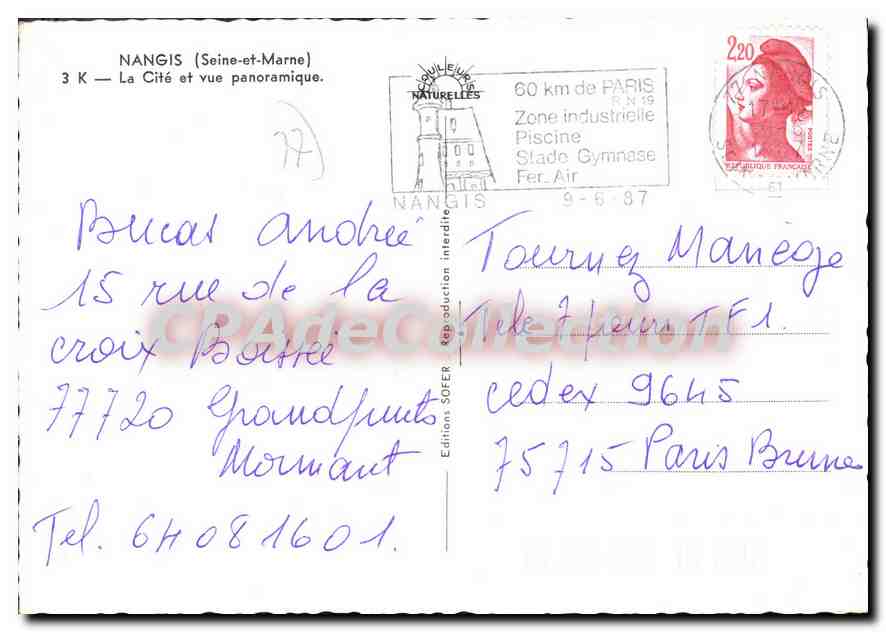 NANGIS (Seine-et-Marne)
3 K — La Cité et vue panoramique.
77
COULEURS
NATURELLES
60 km de PARIS
R.N 19
Zone industrielle
Piscine
Stade Gymnase
Fer_Air
NANGIS 9-6-87
2,20
RÉPUBLIQUE FRANÇAISE
61
Bucas Andrée
15 rue de la
croix Boissée
77720 Grandpuits
Mormant
Tel. 64081601.
Editions SOFER Reproduction interdite
Tournez Manège
Tele 7 jours TF1.
cedex 9645
75715 Paris Brune
CPAdeCollection